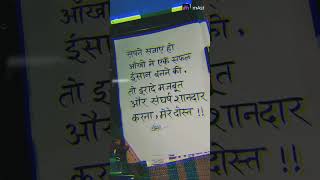 सपने सजाए हो
आँखों ने एक सफल
इंसान बनने की,
तो इरादे मजबूत
और संघर्ष शानदार
करना, मेरे दोस्त !!